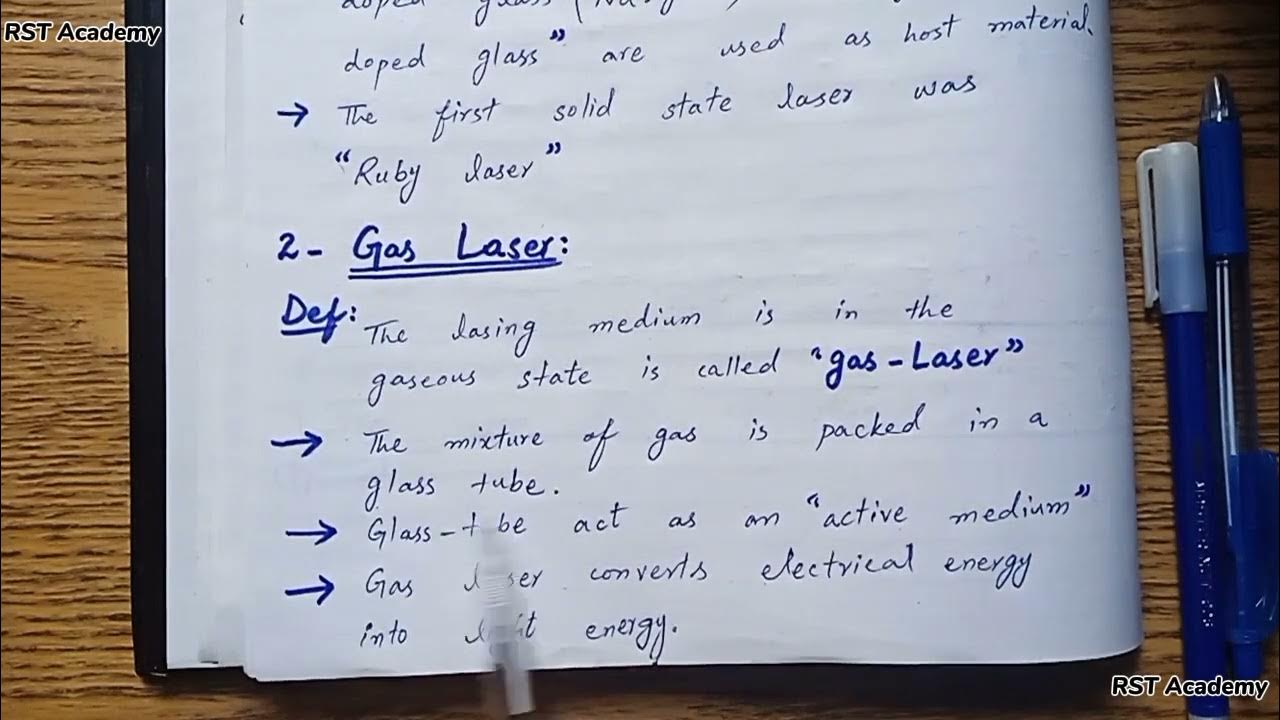 RST Academy
doped glass
doped glass” are used as host material.
→ The first solid state laser was
“Ruby laser”
2- Gas Laser:
Def: The lasing medium is in the
gaseous state is called “gas-Laser”
→ The mixture of gas is packed in a
glass tube.
→ Glass-tube act as an “active medium”
→ Gas laser converts electrical energy
into light energy.
RST Academy